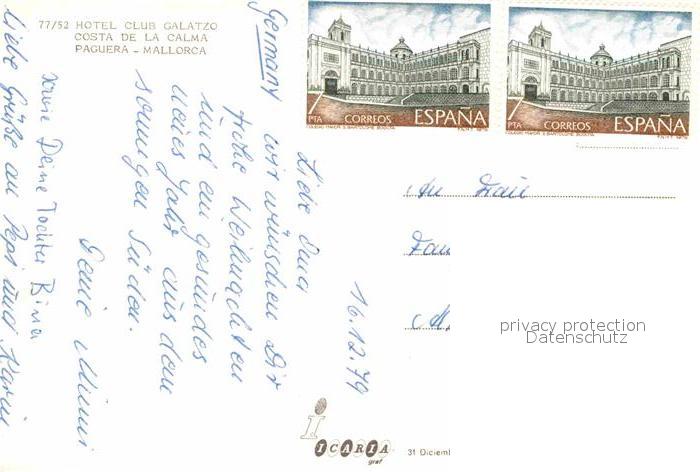 77/52 HOTEL CLUB GALATZO
COSTA DE LA CALMA
PAGUERA - MALLORCA
7 PTA CORREOS ESPAÑA
7 PTA CORREOS ESPAÑA
Germany
16.12.79
Liebe Oma
wir wünschen Dir
frohe Weihnachten
und ein gesundes
neues Jahr aus dem
sonnigen Süden.
Deine Mimi
Deine Tochter
Liebe Grüße an Pepi und Karin
An
privacy protection
Datenschutz
ICARIA
graf
31 Diciemb